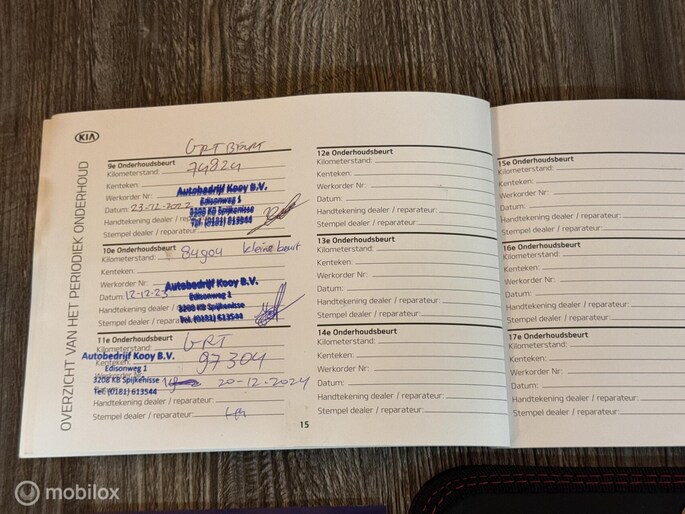 KIA
OVERZICHT VAN HET PERIODIEK ONDERHOUD
GRT BEURT
9e Onderhoudsbeurt
Kilometerstand: 74824
Kenteken:
Werkorder Nr:
Autobedrijf Kooy B.V.
Edisonweg 1
Datum: 23-12-2022
3208 KB Spijkenisse
Handtekening dealer / reparateur:
Tel. (0181) 613544
Stempel dealer / reparateur:
10e Onderhoudsbeurt
Kilometerstand: 84904 kleine beurt
Kenteken:
Werkorder Nr:
Autobedrijf Kooy B.V.
Datum: 12-12-23
Edisonweg 1
Handtekening dealer / reparateur:
3208 KB Spijkenisse
Stempel dealer / reparateur:
Tel. (0181) 613544
11e Onderhoudsbeurt
GRT
Kilometerstand:
97304
Autobedrijf Kooy B.V.
Kenteken:
Edisonweg 1
3208 KB Spijkenisse
20-12-2024
Tel. (0181) 613544
Handtekening dealer / reparateur:
Stempel dealer / reparateur:
12e Onderhoudsbeurt
Kilometerstand:
Kenteken:
Werkorder Nr:
Datum:
Handtekening dealer / reparateur:
Stempel dealer / reparateur:
13e Onderhoudsbeurt
Kilometerstand:
Kenteken:
Werkorder Nr:
Datum:
Handtekening dealer / reparateur:
Stempel dealer / reparateur:
14e Onderhoudsbeurt
Kilometerstand:
Kenteken:
Werkorder Nr:
Datum:
Handtekening dealer / reparateur:
Stempel dealer / reparateur:
15
15e Onderhoudsbeurt
Kilometerstand:
Kenteken:
Werkorder Nr:
Datum:
Handtekening dealer / reparateur:
Stempel dealer / reparateur:
16e Onderhoudsbeurt
Kilometerstand:
Kenteken:
Werkorder Nr:
Datum:
Handtekening dealer / reparateur:
Stempel dealer / reparateur:
17e Onderhoudsbeurt
Kilometerstand:
Kenteken:
Werkorder Nr:
Datum:
Handtekening dealer / reparateur:
Stempel dealer / reparateur:
mobilox